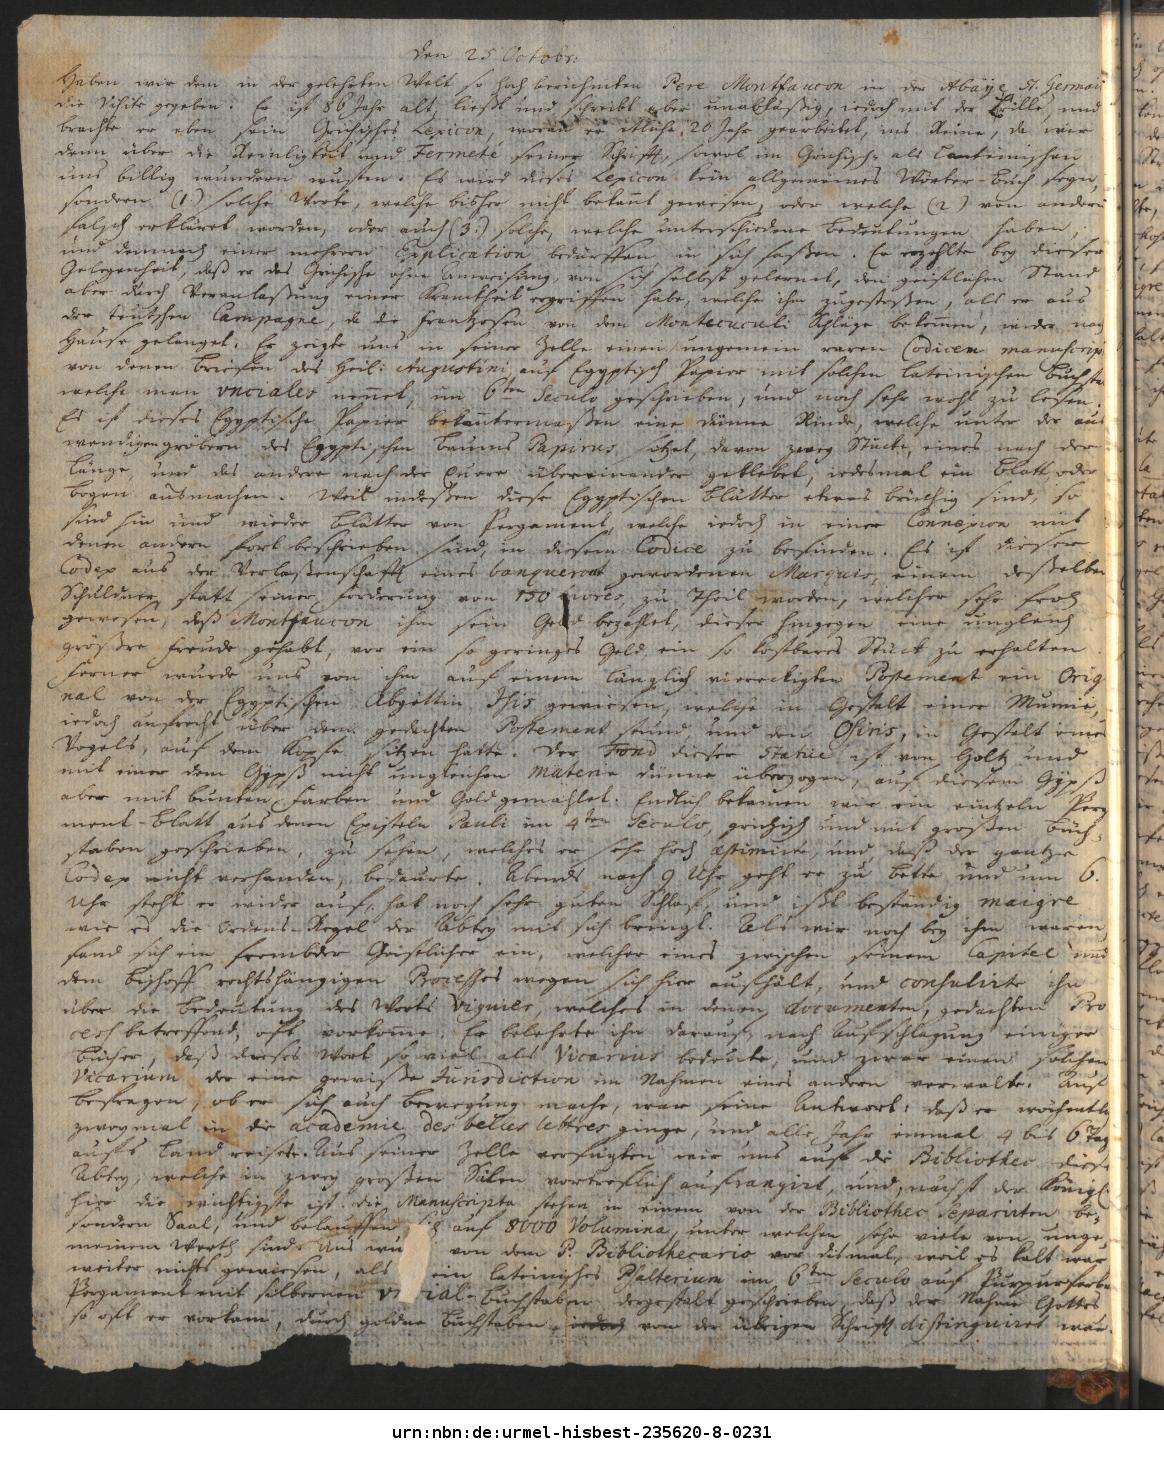 Den 25 Octobr:
Haben wir dem in der gelehrten Welt so hoch berühmten Pere Montfaucon in der Abaÿe St. Germai
die Visite gegeben. Er ist 86 Jahr alt, ließt und schreibt aber unabläßig, iedoch mit der Brille, und
brachte er eben sein Grichisches Lexicon, woran er etliche 20 Jahr gearbeitet, ins Reine, da wir
denn über die Reinligkeit und Fermeté seiner Schrifft, sowol im Grichisch- als Lateinischen
uns billig wundern musten. Es wird dieses Lexicon kein allgemeines Wörter-Buch seyn,
sondern (1.) solche Worte, welche bisher nicht bekannt gewesen, oder welche (2) von andern
falsch erkläret worden, oder auch (3.) solche, welche unterschiedene Bedeutungen haben,
und dennoch einer mehrern Explication bedürffen, in sich faßen. Er erzehlte bey dieser
Gelegenheit, daß er das Grichische ohne Anweisung, von sich selbst gelernet, den geistlichen Stand
aber durch Veranlaßung einer Kranckheit ergriffen habe, welche ihm zugestoßen, als er aus
der teutschen Campagne, da die Frantzosen von dem Montecuculi Schläge bekommen, wieder nach
Hause gelanget. Er zeigte uns in seiner Zelle einen ungemein raren Codicem manuscrip
von denen Briefen des Heil: Augustini, auf Egyptisch Papier mit solchen lateinischen Buchsta
welche man vnciales nennet, im 6ten Seculo geschrieben, und noch sehr wohl zu lesen.
Es ist dieses Egyptische Papier bekanntermaßen eine dünne Rinde, welche unter der aus
wendigen gröbern des Egyptischen Baums Papirus sitzet, davon zwey Stücke, eines nach der
Länge, und das andere nach der Quere übereinander geklebet, iedesmal ein Blatt oder
Bogen ausmachen. Weil indeßen diese Egyptischen Blätter etwas brüchig sind, so
sind hin und wieder Blätter von Pergament, welche iedoch in einer Connexion mit
denen andern fort beschrieben sind, in diesem Codice zu befinden. Es ist dieser
Codex aus der Verlaßenschafft eines banquerout gewordenen Marquis, einem deßelben
Schuldner statt seiner Forderung von 150 Livres, zu Theil worden, welcher sehr froh
gewesen, daß Montfaucon ihm sein Geld bezahlet, dieser hingegen eine ungleich
größre Freude gehabt, vor ein so geringes Geld ein so kostbares Stück zu erhalten.
Ferner wurde uns von ihm auf einem länglich viereckigten Postement ein Origi
nal von der Egyptischen Abgöttin Isis gewiesen, welche in Gestalt einer Mumie,
iedoch aufrecht über dem gedachten Postement stund, und den Osiris, in Gestalt eines
Vogels, auf dem Kopfe sitzen hatte. Der Fond dieser Statüe ist von Holtz und
mit einer dem Gÿpß nicht ungleichen Materie dünne überzogen, auf diesem Gÿpß
aber mit bunten Farben und Gold gemahlet. Endlich bekamen wir ein eintzeln Perg
ment-Blatt aus denen Episteln Pauli im 4ten Seculo, grichisch und mit großen Buch-
staben geschrieben, zu sehen, welches er sehr hoch æstimirte, und, daß der gantze
Codex nicht vorhanden, bedaurte. Abends nach 9 Uhr geht er zu Bette und um 6.
Uhr steht er wieder auf, hat noch sehr guten Schlaf, und ißt beständig maigre
wie es die Ordens-Regel der Abtey mit sich bringt. Als wir noch bey ihm waren,
fand sich ein frembder Geistlicher ein, welcher eines zwischen seinem Capitel und
dem Bischoff rechtshängigen Processes wegen sich hier aufhält, und consulirte ihn
über die Bedeutung des Worts Viguier, welches in denen documenten, gedachten Pro
cess betreffend, offt vorkomme. Er belehrte ihn darauf, nach Aufschlagung einiger
Bücher, daß dieses Wort so viel als Vicarius bedeute, und zwar einen solchen
Vicarium, der eine gewiße Jurisdiction im Nahmen eines andern verwalte. Auf
Befragen, ob er sich auch Bewegung mache, war seine Antwort: daß er wöchentl
zweymal in die academie des belles lettres ginge, und alle Jahr einmal 4 bis 6 Tag
aufs Land reisete. Aus seiner Zelle verfügten wir uns auf die Bibliothec dieser
Abtey, welche in zwey großen Sälen vortrefflich aufrangirt, und, nächst der Königl.
hier die wichtigste ist. die Manuscripta stehen in einem von der Bibliothec separirten be-
sondern Saal, und belauffen sich auf 8000 Volumina, unter welchen sehr viele von unge
meinem Werth sind. Uns wu von dem P. Bibliothecario vor dismal, weil es kalt war
weiter nichts gewiesen, als ein lateinisches Psalterium im 6ten Seculo auf Purpurfarbe
Pergament mit silbernen vncial-Buchstaben dergestalt geschrieben, daß der Nahme Gottes
so offt er vorkam, durch goldne Buchstaben von der übrigen Schrifft distinguiret war.
urn:nbn:de:urmel-hisbest-235620-8-0231